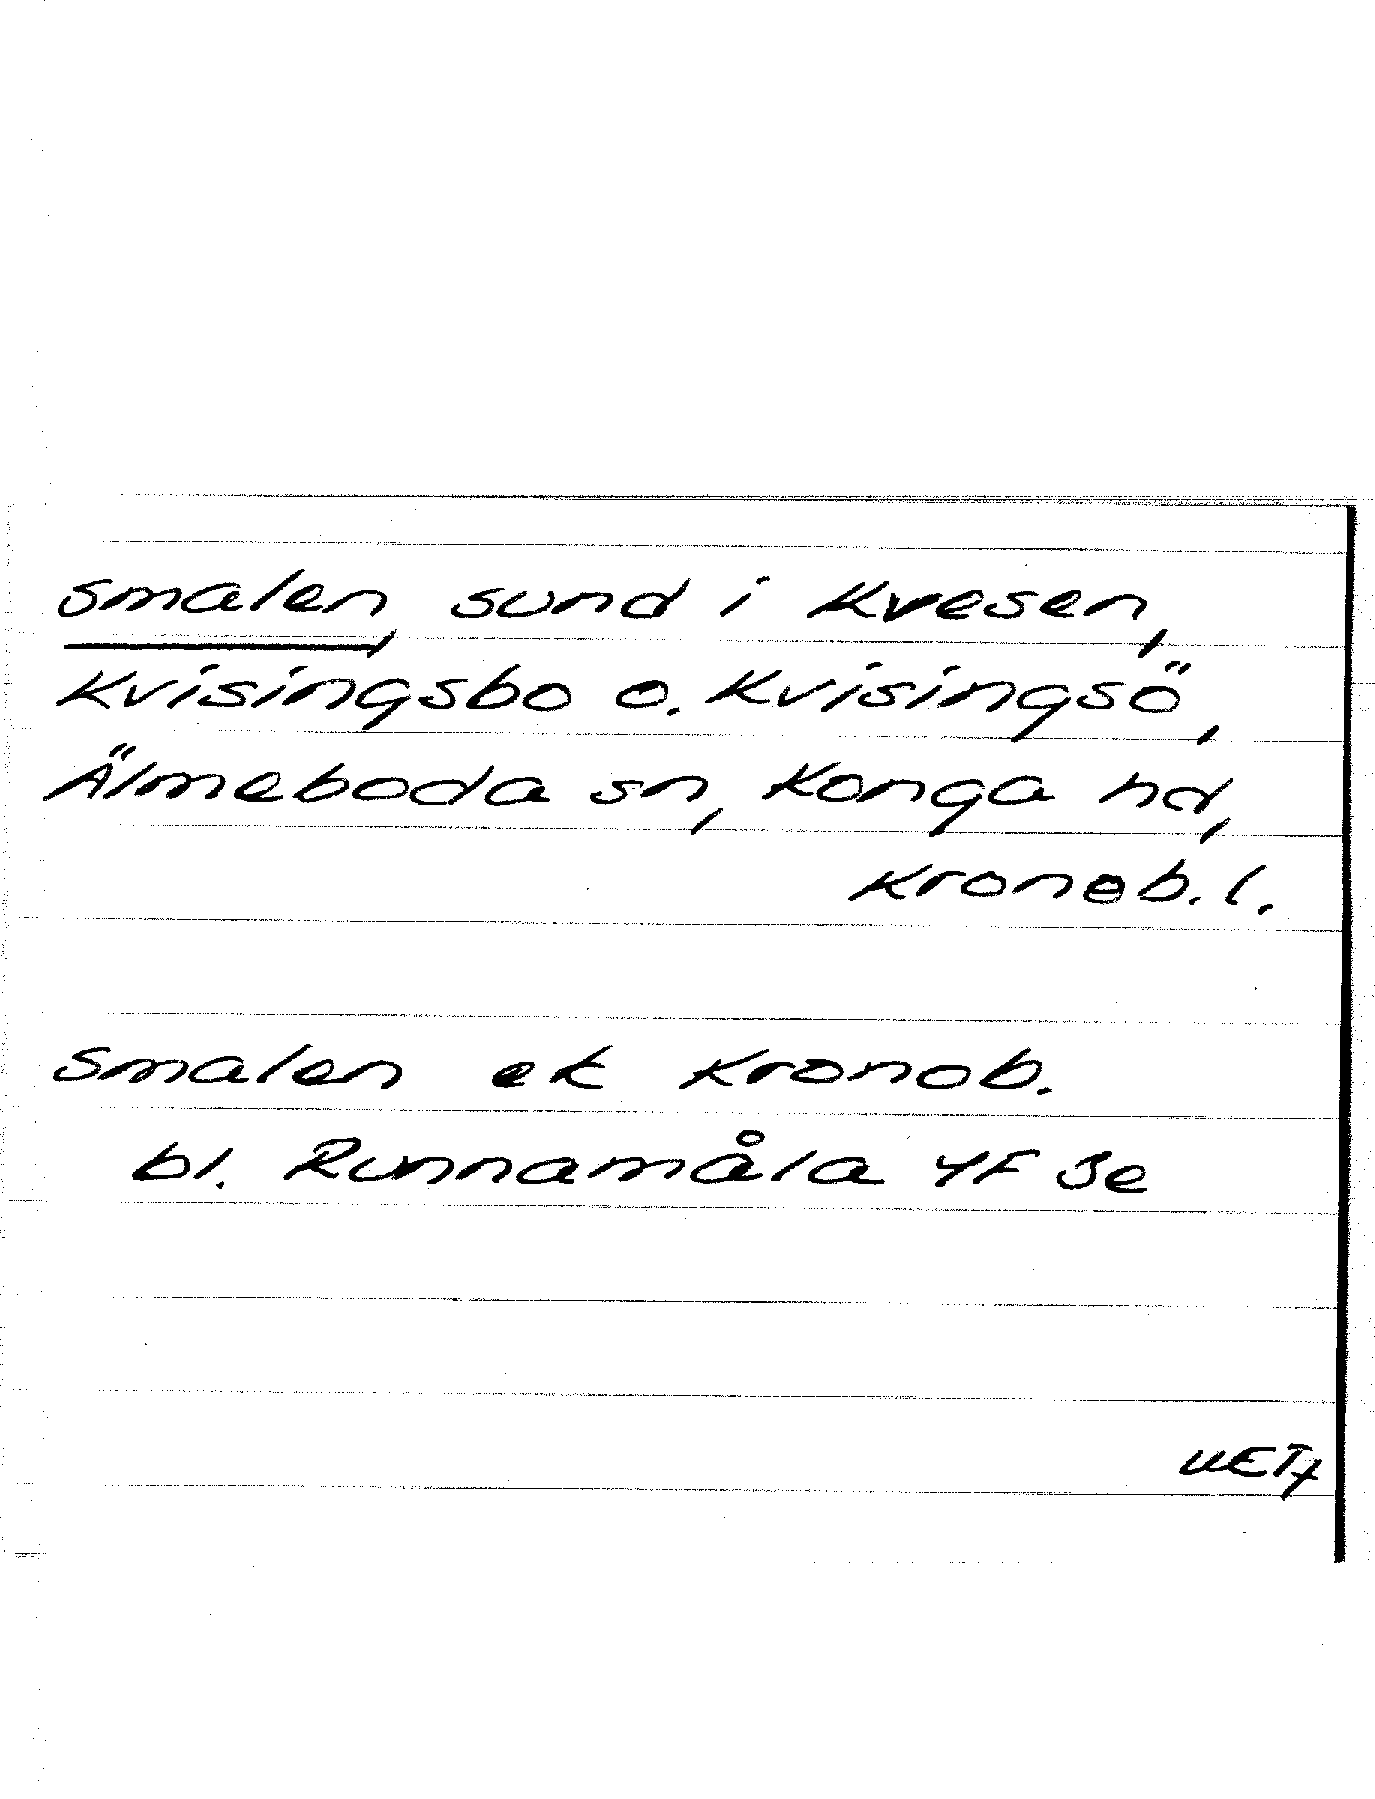 Smalen, sund i Kvesen,
Kvisingsbo o. Kvisingsö,
Älmeboda sn, Konga hd,
Kronob. l.
Smalen ek Kronob.
bl. Runnamåla 4F 3e